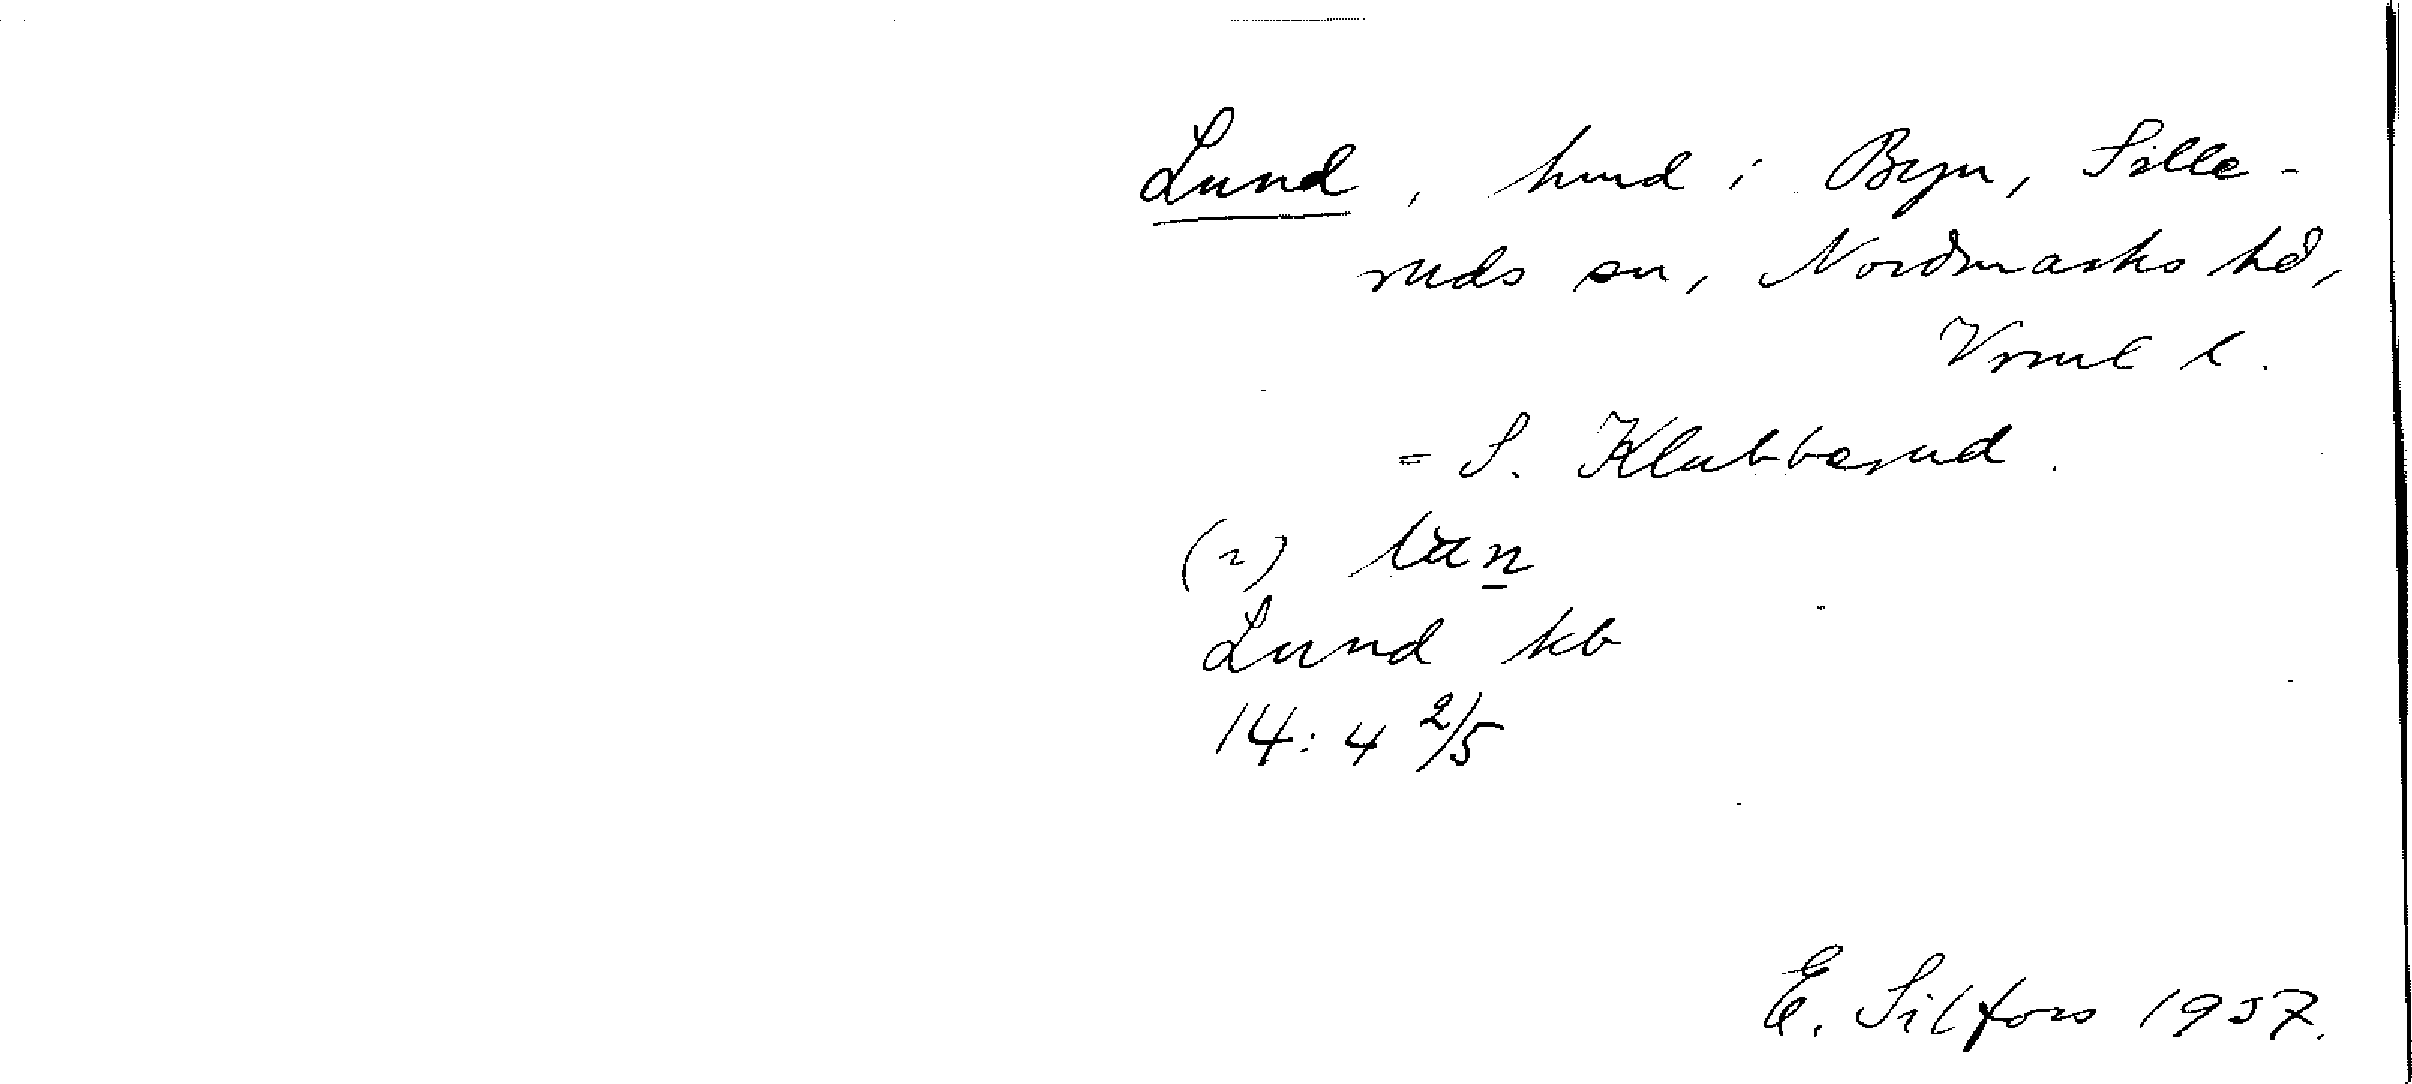 Lund, hmd i Byn, Sille-
ruds sn, Nordmarks hd,
Vrml l.
= S. Klubberud.
(2)
Lund kb
14: 4 2/5
E. Silfors 1957.